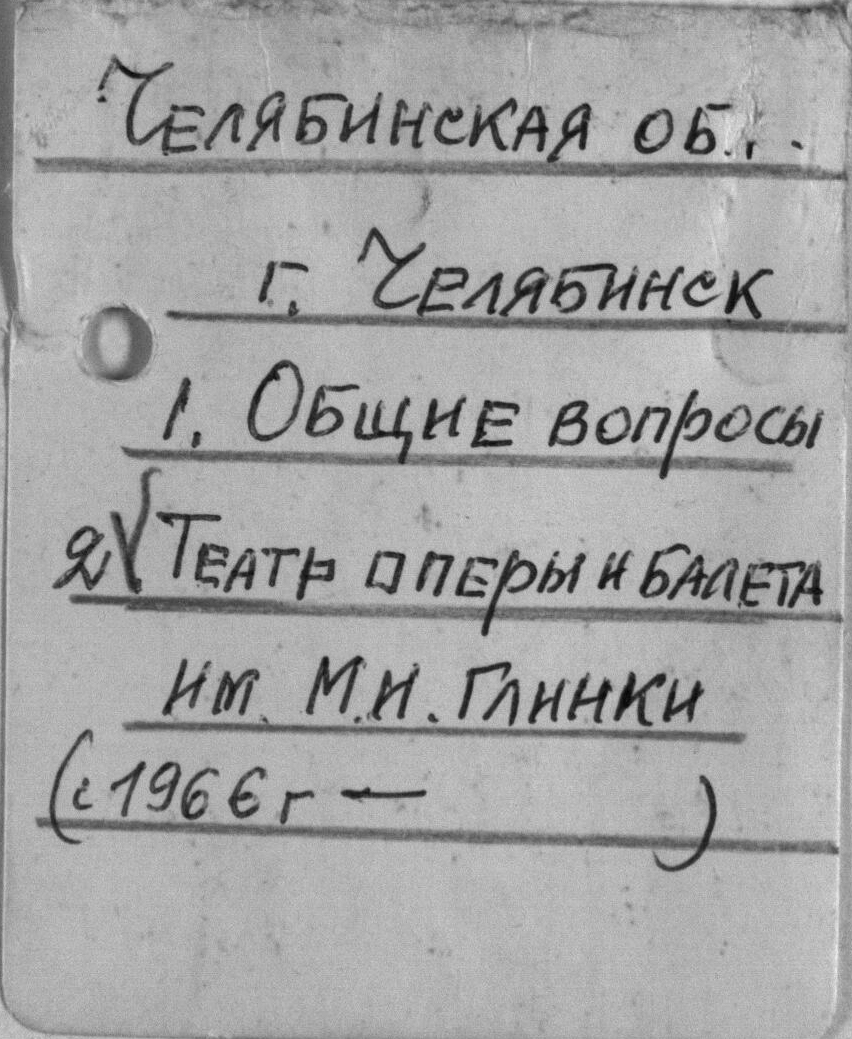 ЧЕЛЯБИНСКАЯ ОБ..
г. ЧЕЛЯБИНСК
1. ОБЩИЕ ВОПРОСЫ
2 √ ТЕАТР ОПЕРЫ И БАЛЕТА
ИМ. М.И. ГЛИНКИ
(с 1966 г — )